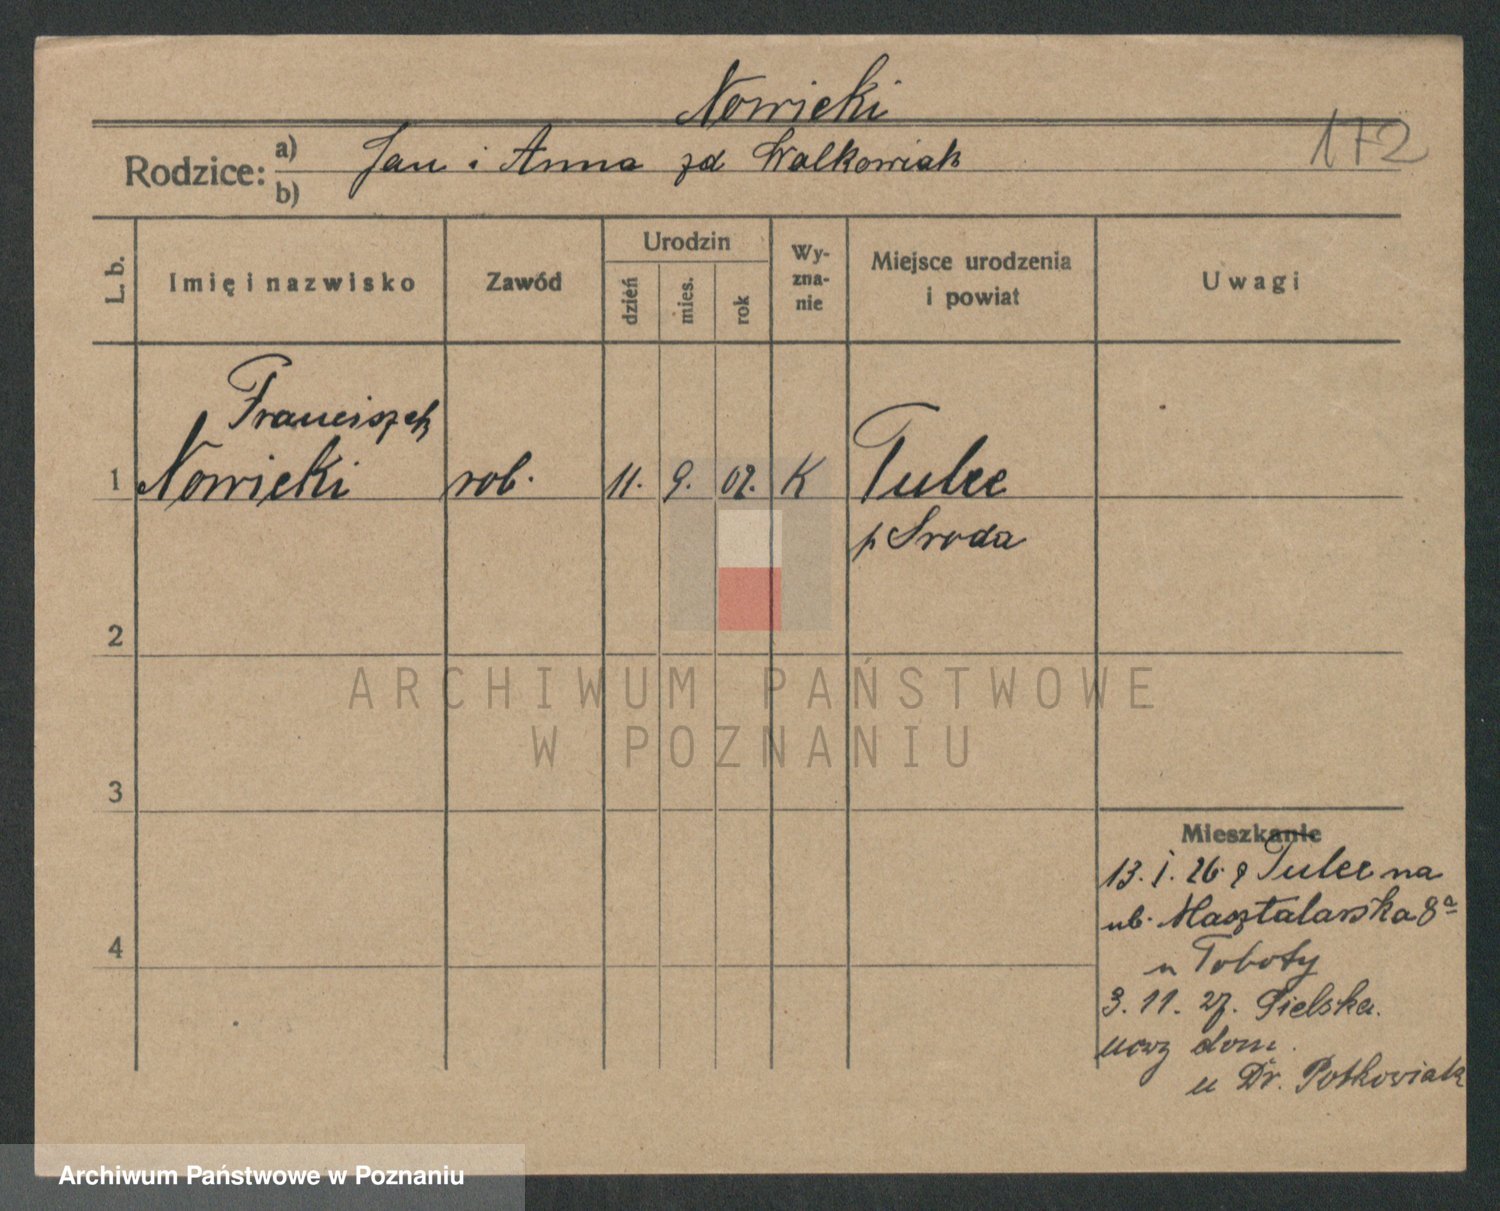 Nowicki
172
Rodzice: a) Jan i Anna zd Walkowiak
b)
L. b. Imię i nazwisko Zawód Urodzin dzień mies. rok Wy-zna-nie Miejsce urodzenia i powiat Uwagi
Franciszek
1 Nowicki rob. 11. 9. 07. K Tulce
p Sroda
2
ARCHIWUM PAŃSTWOWE
W POZNANIU
3
Mieszkanie
13. I. 26 z Tulce na
ub. Masztalarska 8a
4
u Toboty
3. 11. 27. Pielska.
nowy dom.
u Dr. Potkowiak
Archiwum Państwowe w Poznaniu